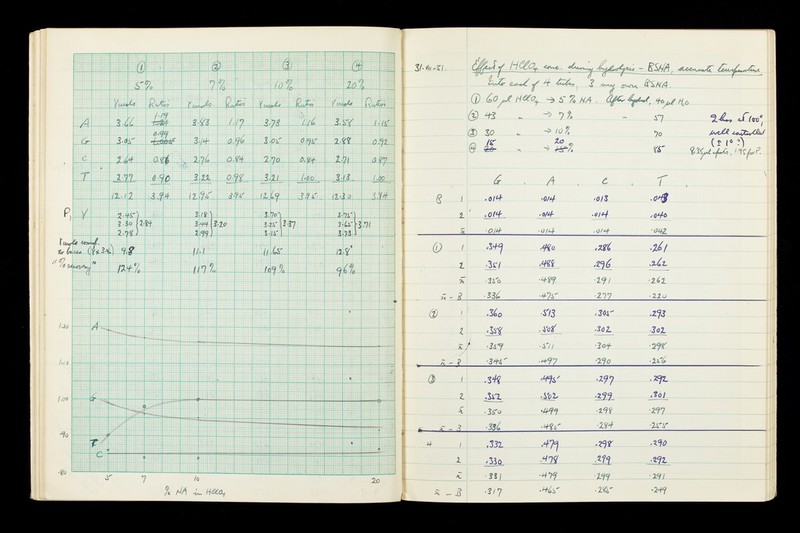 ① ② ③ ④
5% 7% 10% 20%
γmols Ratio γmols Ratio γmols Ratio γmols Ratio
A 3.66 1.19 3.83 1.17 3.73 1.16 3.58 1.15
G 3.05 0.99 3.14 0.96 3.05 0.95 2.88 0.92
C 2.64 0.86 2.76 0.84 2.70 0.84 2.71 0.87
T 2.77 0.90 3.22 0.98 3.21 1.00 3.13 1.00
12.12 3.94 12.95 3.95 12.69 3.95 12.30 3.94
P, γ 2.45 3.18 3.70 3.75
3.30 2.84 3.44 3.20 3.25 3.37 3.65 3.71
2.78 2.99 3.15 3.73
to bases 9.8 11.1 11.65 12.8
"% recovery" 124% 117% 109% 96%
1.20 A
1.10
1.00 G
.90
T
C
.80
5 7 10 20
% NA in HClO4
31.
Effect of HClO4 conc. during hydrolysis - BSNA, accurate temperature
Into each of 4 tubes, 3 mg own BSNA.
① 60 μl HClO4 → 5% NA. After hydrol, 40 μl H2O
② 43 " → 7% - 57 2 hrs at 100°,
③ 30 " → 10% 70 well controlled
④ 15 " → 20% 85 (± 1° ?)
G A C T
B 1 .014 .014 .013 .043
2 .014 .014 .014 .040
x̄ .014 .014 .014 .042
① 1 .349 .490 .286 .261
2 .351 .488 .296 .262
x̄ .350 .489 .291 .262
x̄ - B .336 .475 .277 .220
② 1 .360 .513 .305 .293
2 .358 .508 .302 .302
x̄ .359 .511 .304 .298
x̄ - B .345 .497 .290 .256
③ 1 .348 .495 .297 .292
2 .352 .502 .299 .301
x̄ .350 .499 .298 .297
x̄ - B .336 .485 .284 .255
4 1 .332 .479 .298 .290
2 .330 .478 .299 .292
x̄ .331 .479 .299 .291
x̄ - B .317 .465 .285 .249